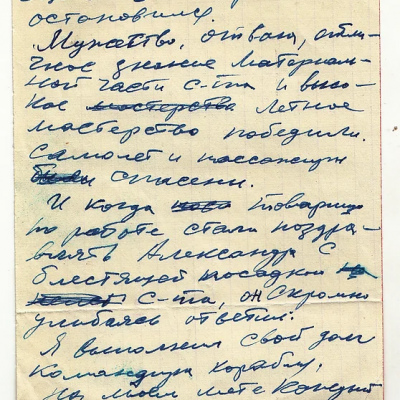 остановился.
Мужество, отвага, отли-
чное знание материаль-
ной части с-та и высо-
кое мастерство летное
мастерство победили.
Самолет и пассажиры
были спасены.
И когда товарищи
по работе стали поздра-
влять Александра с
блестящей посадкой
с-та, он скромно
улыбаясь ответил:
Я выполнил свой долг
командира корабля,
На моем месте каждый